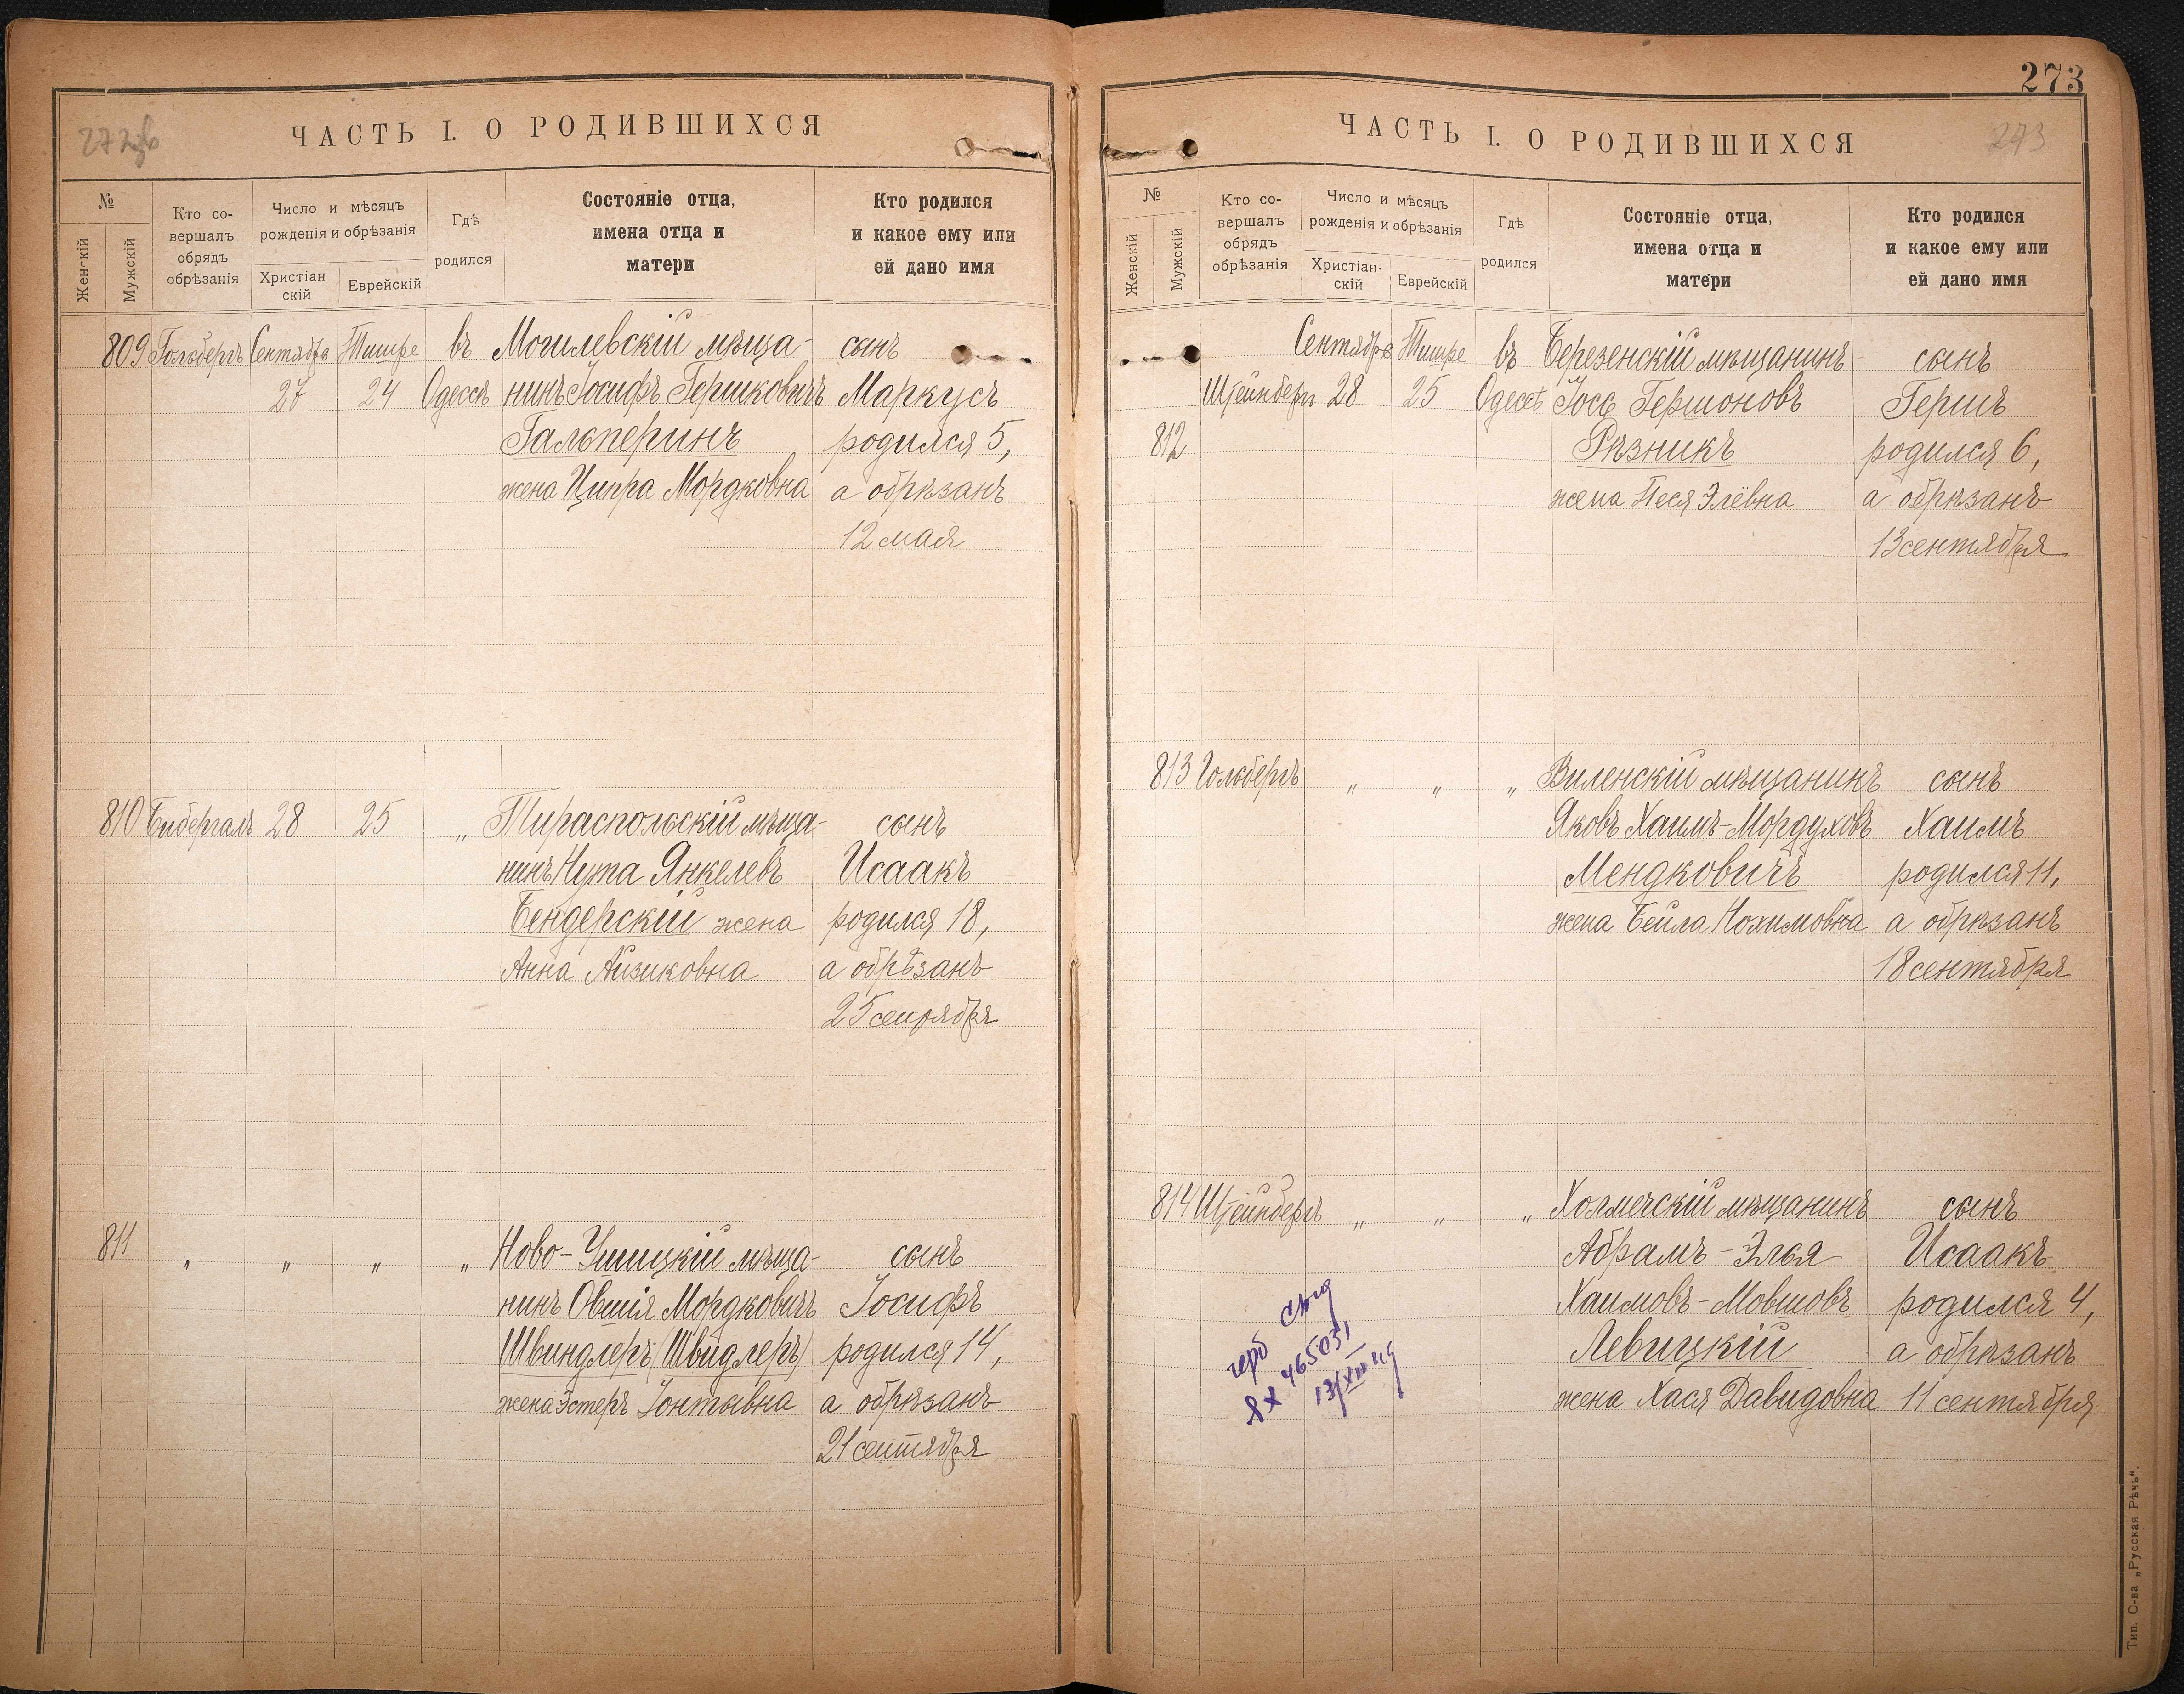 ЧАСТЬ I. О РОДИВШИХСЯ
№
Женскій
Мужскій
Кто со-
вершалъ
обрядъ
обрѣзанія
Число и мѣсяцъ
рожденія и обрѣзанія
Христіан
скій
Еврейскій
Гдѣ
родился
Состояніе отца,
имена отца и
матери
Кто родился
и какое ему или
ей дано имя
809 Гольбергъ Сентябрь Тишре въ Могилевскій мѣща- сынъ
27 24 Одессѣ нинъ Іосифъ Гершковичъ Маркусъ
Гальперинъ родился 5,
жена Ципра Мордковна а обрѣзанъ
12 мая
810 Бибергалъ 28 25 „ Тираспольскій мѣща- сынъ
нинъ Нута Янкелевъ Исаакъ
Бендерскій жена родился 18,
Анна Айзиковна а обрѣзанъ
25 сентября
811 „ „ „ „ Ново-Ушицкій мѣща- сынъ
нинъ Овшія Мордковичъ Іосифъ
Швиндлеръ (Швидлеръ) родился 14,
жена Эстеръ Іонтывна а обрѣзанъ
21 сентября
273
ЧАСТЬ I. О РОДИВШИХСЯ
273
№
Женскій
Мужскій
Кто со-
вершалъ
обрядъ
обрѣзанія
Число и мѣсяцъ
рожденія и обрѣзанія
Христіан-
скій
Еврейскій
Гдѣ
родился
Состояніе отца,
имена отца и
матери
Кто родился
и какое ему или
ей дано имя
Сентябрь Тишре въ Березенскій мѣщанинъ сынъ
Штейнбергъ 28 25 Одессѣ Іосъ Гершоновъ Гершъ
812 Рѣзникъ родился 6,
жена Песя Элёвна а обрѣзанъ
13 сентября
813 Гольбергъ „ „ „ Виленскій мѣщанинъ сынъ
Яковъ Хаимъ-Мордуховъ Хаимъ
Мендковичъ родился 11,
жена Бейла Нохимовна а обрѣзанъ
18 сентября
814 Штейнбергъ „ „ „ Холмечскій мѣщанинъ сынъ
Абрамъ-Элья Исаакъ
Хаимовъ-Мовшовъ родился 4,
Левицкій а обрѣзанъ
жена Хася Давидовна 11 сентября
465031
Тип. О-ва „Русская Рѣчь“.